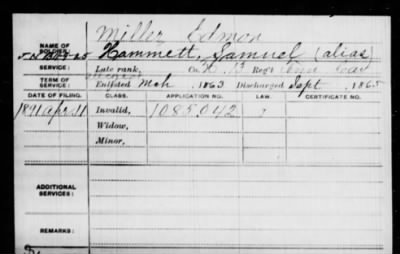 Miller Edmon
NAME OF SOLDIER: Hammett, Samuel (alias)
SERVICE: Late rank, Co. 13 Reg't
TERM OF SERVICE: Enlisted Mch 1863 Discharged Sept 1865
DATE OF FILING. CLASS. APPLICATION NO. LAW. CERTIFICATE NO.
1891 Apr 11 Invalid, 1085042
Widow,
Minor,
ADDITIONAL SERVICES:
REMARKS: